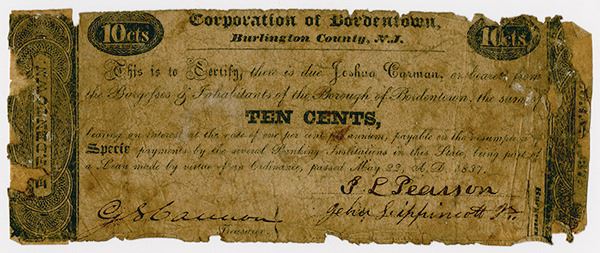 10cts Corporation of Bordentown, 10cts
Burlington County, N.J.
This is to Certify, there is due Joshua Carman, or bearer from
the Burgesses & Inhabitants of the Borough of Bordentown, the sum of
TEN CENTS,
bearing an interest at the rate of one per cent per annum, payable on the resumption
Specie payments by the several Banking Institutions in this State, being part of
a Loan made by virtue of an Ordinance, passed May 22, A.D. 1837.
J L Pearson
Cannon John Lippincott Jr.
Treasurer.
BORDENTOWN.